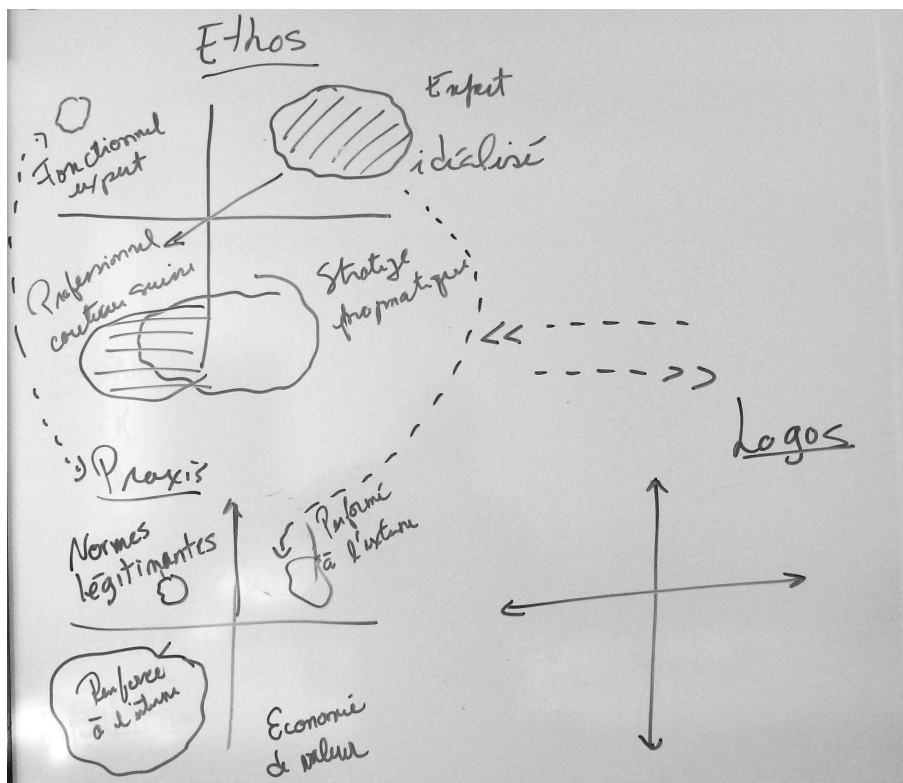 Ethos
Expert
idéalisé
Fonctionnel
expert
Professionnel
couteau suisse
Stratège
pragmatique
<< - - - - - -
- - - - - >>
Logos
Praxis
Normes
légitimantes
Performé
à l'externe
Renforce
à l'interne
Economie
de valeur